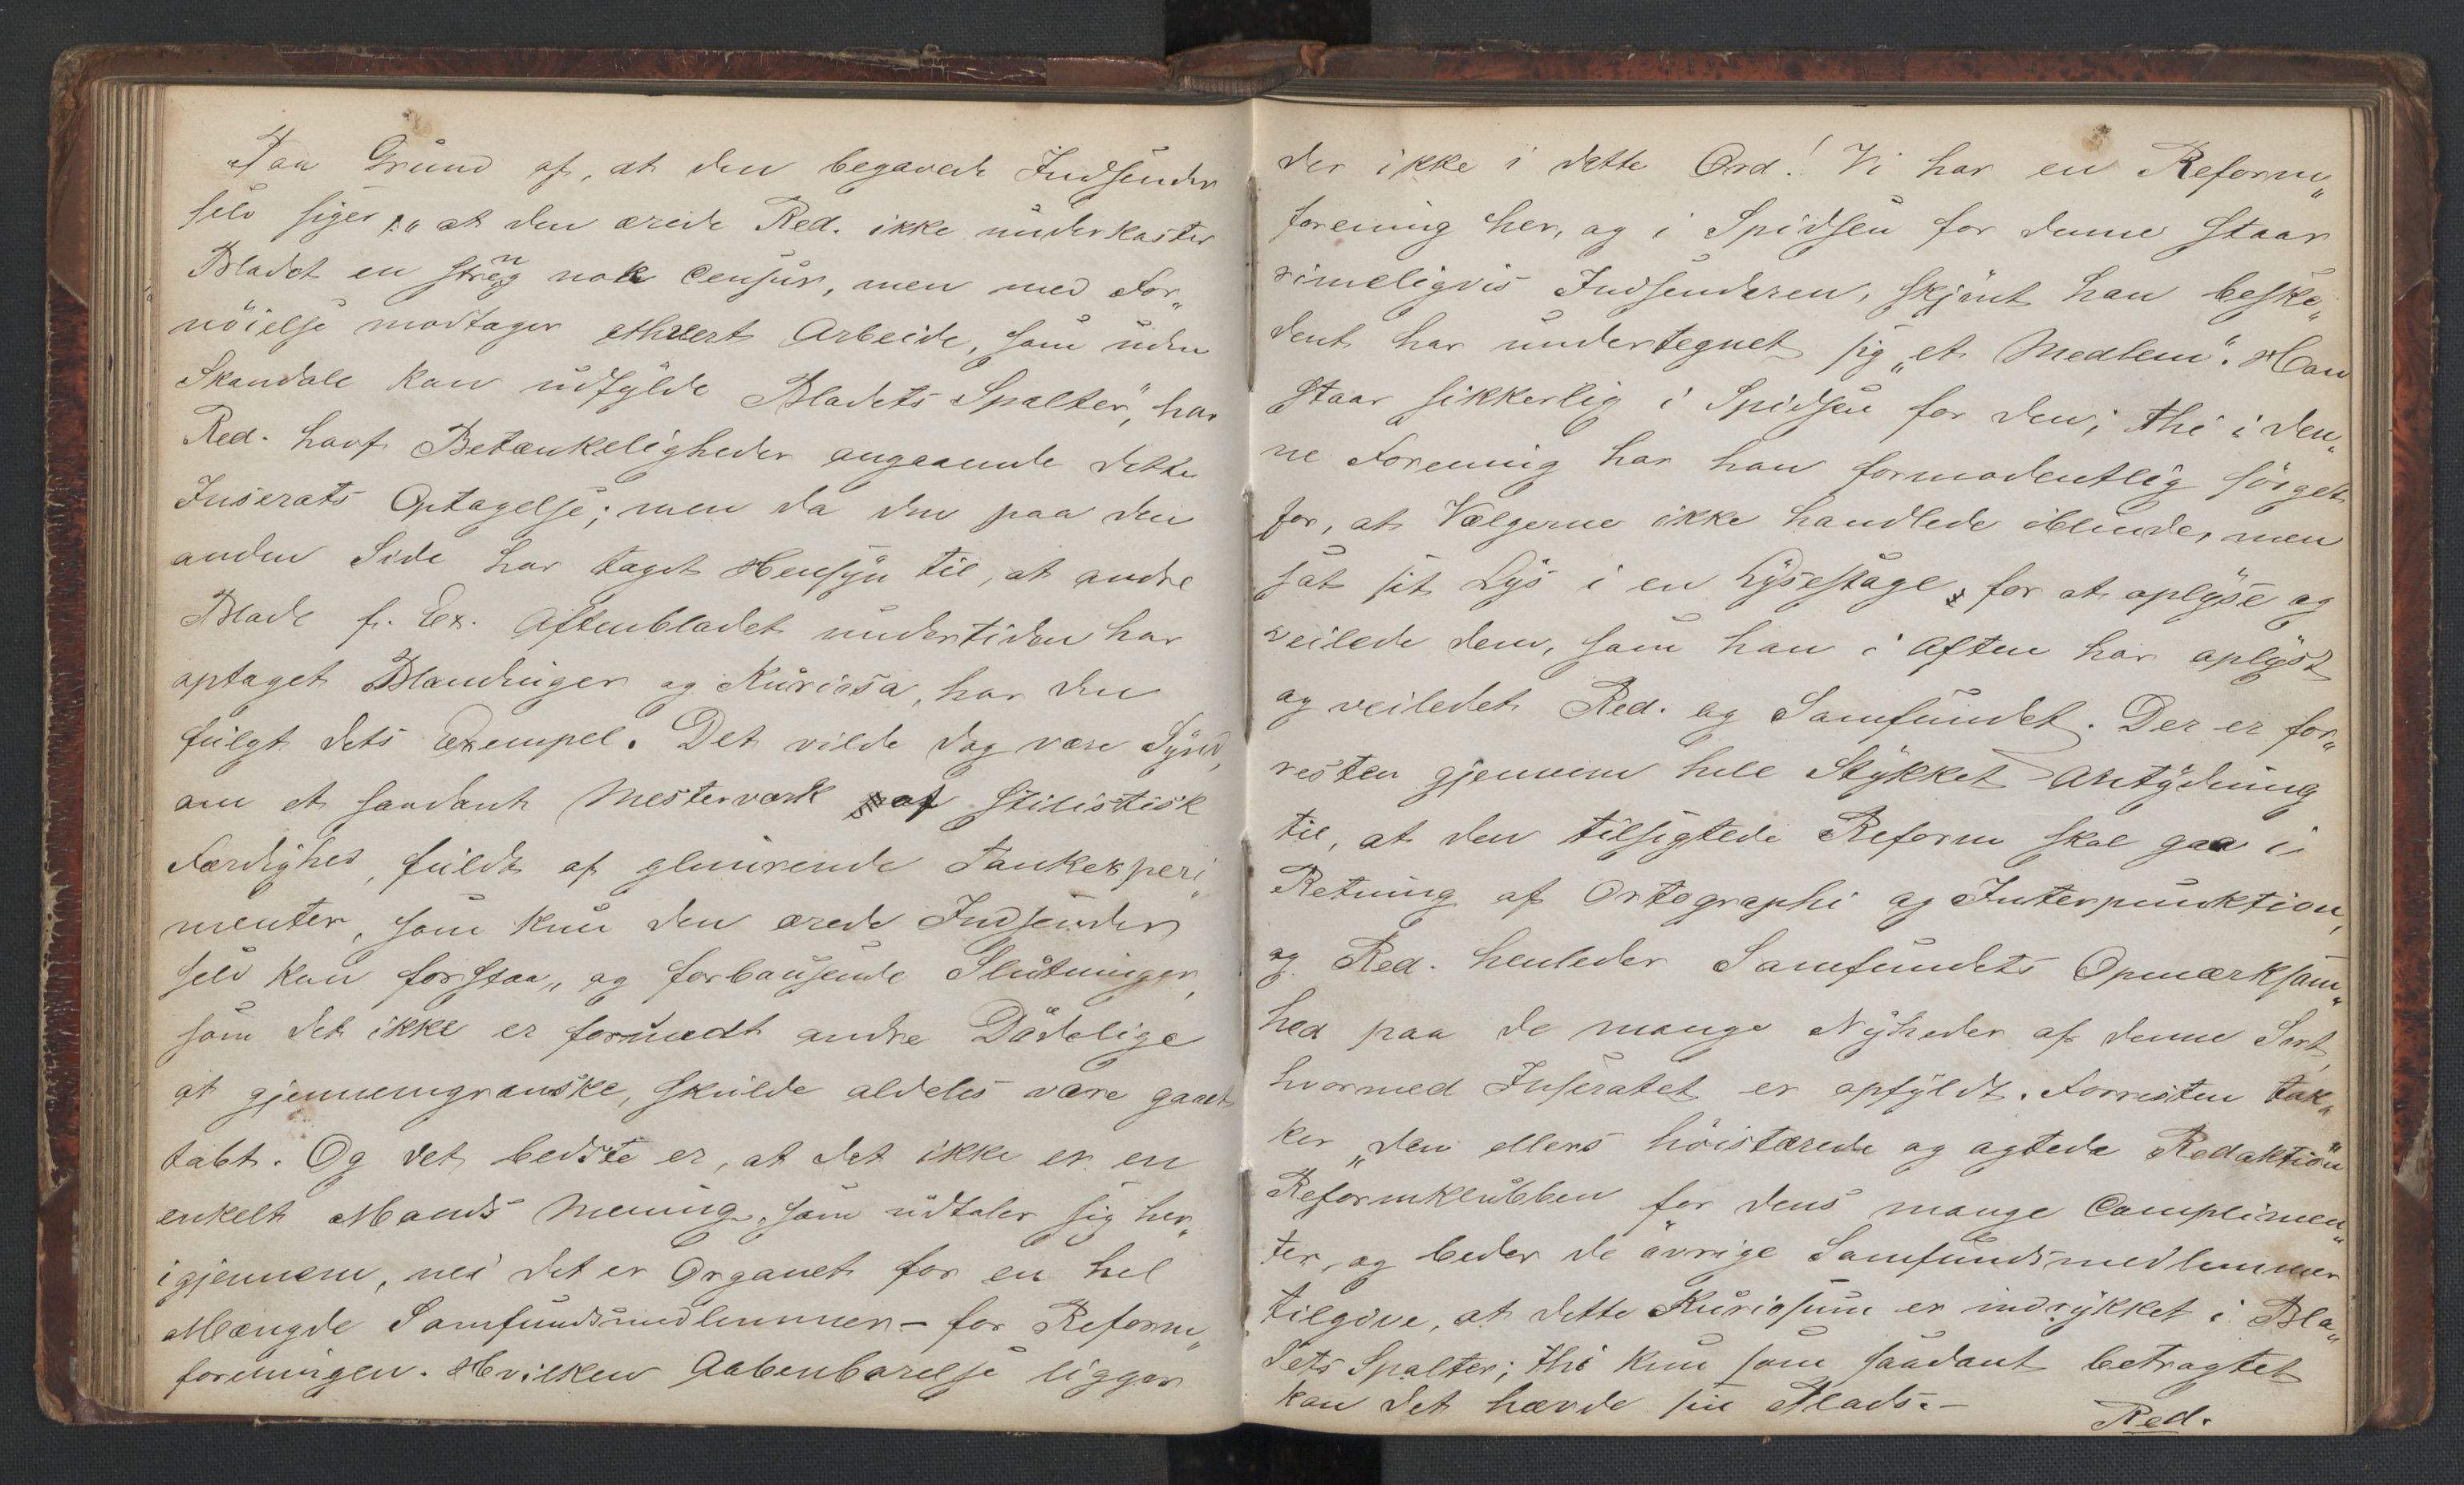 Paa Grund af, at den begavede Indsender
selv siger, „at den ærede Red. ikke underkaster
Bladet en streng nok Censur, men med For„
nöielse modtager ethvert Arbeide, som uden
Skandale kan udfylde Bladets Spalter“, har
Red. havt Betænkeligheder angaaende dette
Inserats Optagelse; men da den paa den
anden Side har taget Hensyn til, at andre
Blade f. Ex. Aftenbladet undertiden har
optaget Blandinger og Kuriosa, har den
fulgt dets Exempel. Det vilde dog være Synd,
om et saadant Mesterværk af stilistisk
Færdighed, fuldt af glimrende Tankexperi„
menter, som kun den ærede Indsender
selv kan forstaa, og forbausende Slutninger,
som det ikke er formedt andre Dödelige
at gjennemgranske, skulde aldeles være gaaet
tabt. Og det bedste er, at det ikke er en
enkelt Mands Mening, som udtaler sig her„
igjennem, nei det er Organet for en hel
Mængde Samfundsmedlemmer – for Reform„
foreningen. Hvilken Aabenbarelse ligger
der ikke i dette Ord! Vi har en Reform„
forening her, og i Spidsen for denne staar
rimeligvis Indsenderen, skjönt han beske„
dent har undertegnet sig „et Medlem“. Han
staar sikkerlig i Spidsen for den; thi i den„
ne Forening har han formodentlig sörget
for, at Vælgerne ikke handlede iblinde, men
sat sit Lys i en Lysestage, for at oplyse og
veilede dem, som han i Aften har oplyst
og veiledet Red. og Samfundet. Der er for„
resten gjennem hele Stykket Antydning
til, at den tilsigtede Reform skal gaa i
Retning af Ortographi og Interpunktion,
og Red. henleder Samfundets Opmærksom„
hed paa de mange Nyheder af denne Sort,
hvormed Inseratet er opfyldt. Forresten tak„
ker „den ellers höistærede og agtede Redaktion“
Reformklubben for dens mange Complimen„
ter, og beder de övrige Samfundsmedlemmer
tilgive, at dette Kuriosum er indrykket i Bla„
dets Spalter; thi kun som saadant betragtet
kan det hævde sin Plads. –
Red.